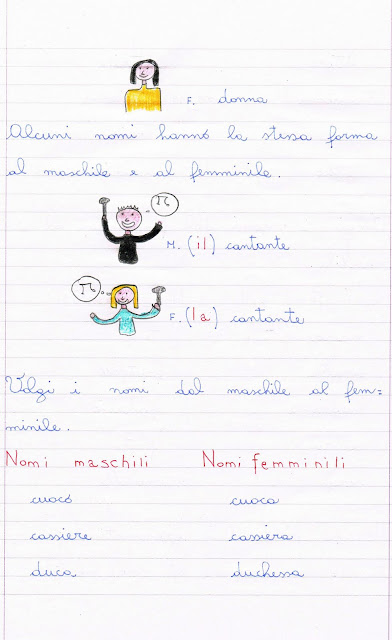 F. donna
Alcuni nomi hanno la stessa forma
al maschile e al femminile.
M. (il) cantante
F. (la) cantante
Volgi i nomi dal maschile al fem=
minile.
Nomi maschili Nomi femminili
cuoco cuoca
cassiere cassiera
duca duchessa